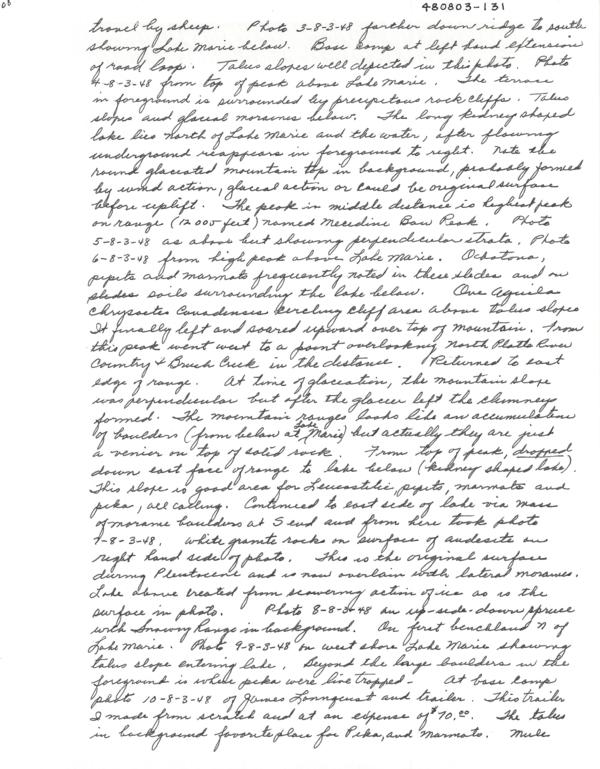 480803-131
travel by sheep. Photo 3-8-3-48 farther down ridge to south
showing Lake Marie below. Base camp at left hand extension
of road loop. Talus slopes well depicted in this photo. Photo
4-8-3-48 from top of peak above Lake Marie. The terrace
in foreground is surrounded by precipitous rock cliffs. Talus
slopes and glacial moraines below. The long kidney shaped
lake lies north of Lake Marie and the water, after flowing
underground reappears in foreground to right. Note the
round glaciated mountain top in background, probably formed
by wind action, glacial action or could be original surface
before uplift. The peak in middle distance is highest peak
on range (12005 feet) named Medicine Bow Peak. Photo
5-8-3-48 as above but showing perpendicular strata. Photo
6-8-3-48 from high peak above Lake Marie. Ochotona,
pipits and marmots frequently noted in these slides and on
slides soils surrounding the lake below. One Aquila
Chrysaetos Canadensis circling cliff area above talus slopes
It finally left and soared upward over top of mountain. From
this peak went west to a point overlooking North Platte River
Country & Brush Creek in the distance. Returned to east
edge of range. At time of glaciation, the mountain slope
was perpendicular but after the glacier left the chimneys
formed. The mountain ranges looks like an accumulation
of boulders (from below at Lake Marie) but actually they are just
a venier on top of solid rock. From top of peak, dropped
down east face of range to lake below (kidney shaped lake).
This slope is good area for Leucosticte, pipits, marmots and
pika, all calling. Continued to east side of lake via mass
of moraine boulders at S end and from here took photo
7-8-3-48, white granite rocks on surface of andesite on
right hand side of photo. This is the original surface
during Pleistocene and is now overlain with lateral moraines.
Lake above created from scowering action of ice as is the
surface in photo. Photo 8-8-3-48 an up-side-down spruce
with Snowy Range in background. On first benchland N of
Lake Marie. Photo 9-8-3-48 on west shore Lake Marie showing
talus slope entering lake. Beyond the large boulders in the
foreground is where pika were live trapped - At base camp
photo 10-8-3-48 of James Lonnquist and trailer. This trailer
I made from scratch and at an expense of $70.00. The talus
in background favorite place for Pika, and Marmots. Mule